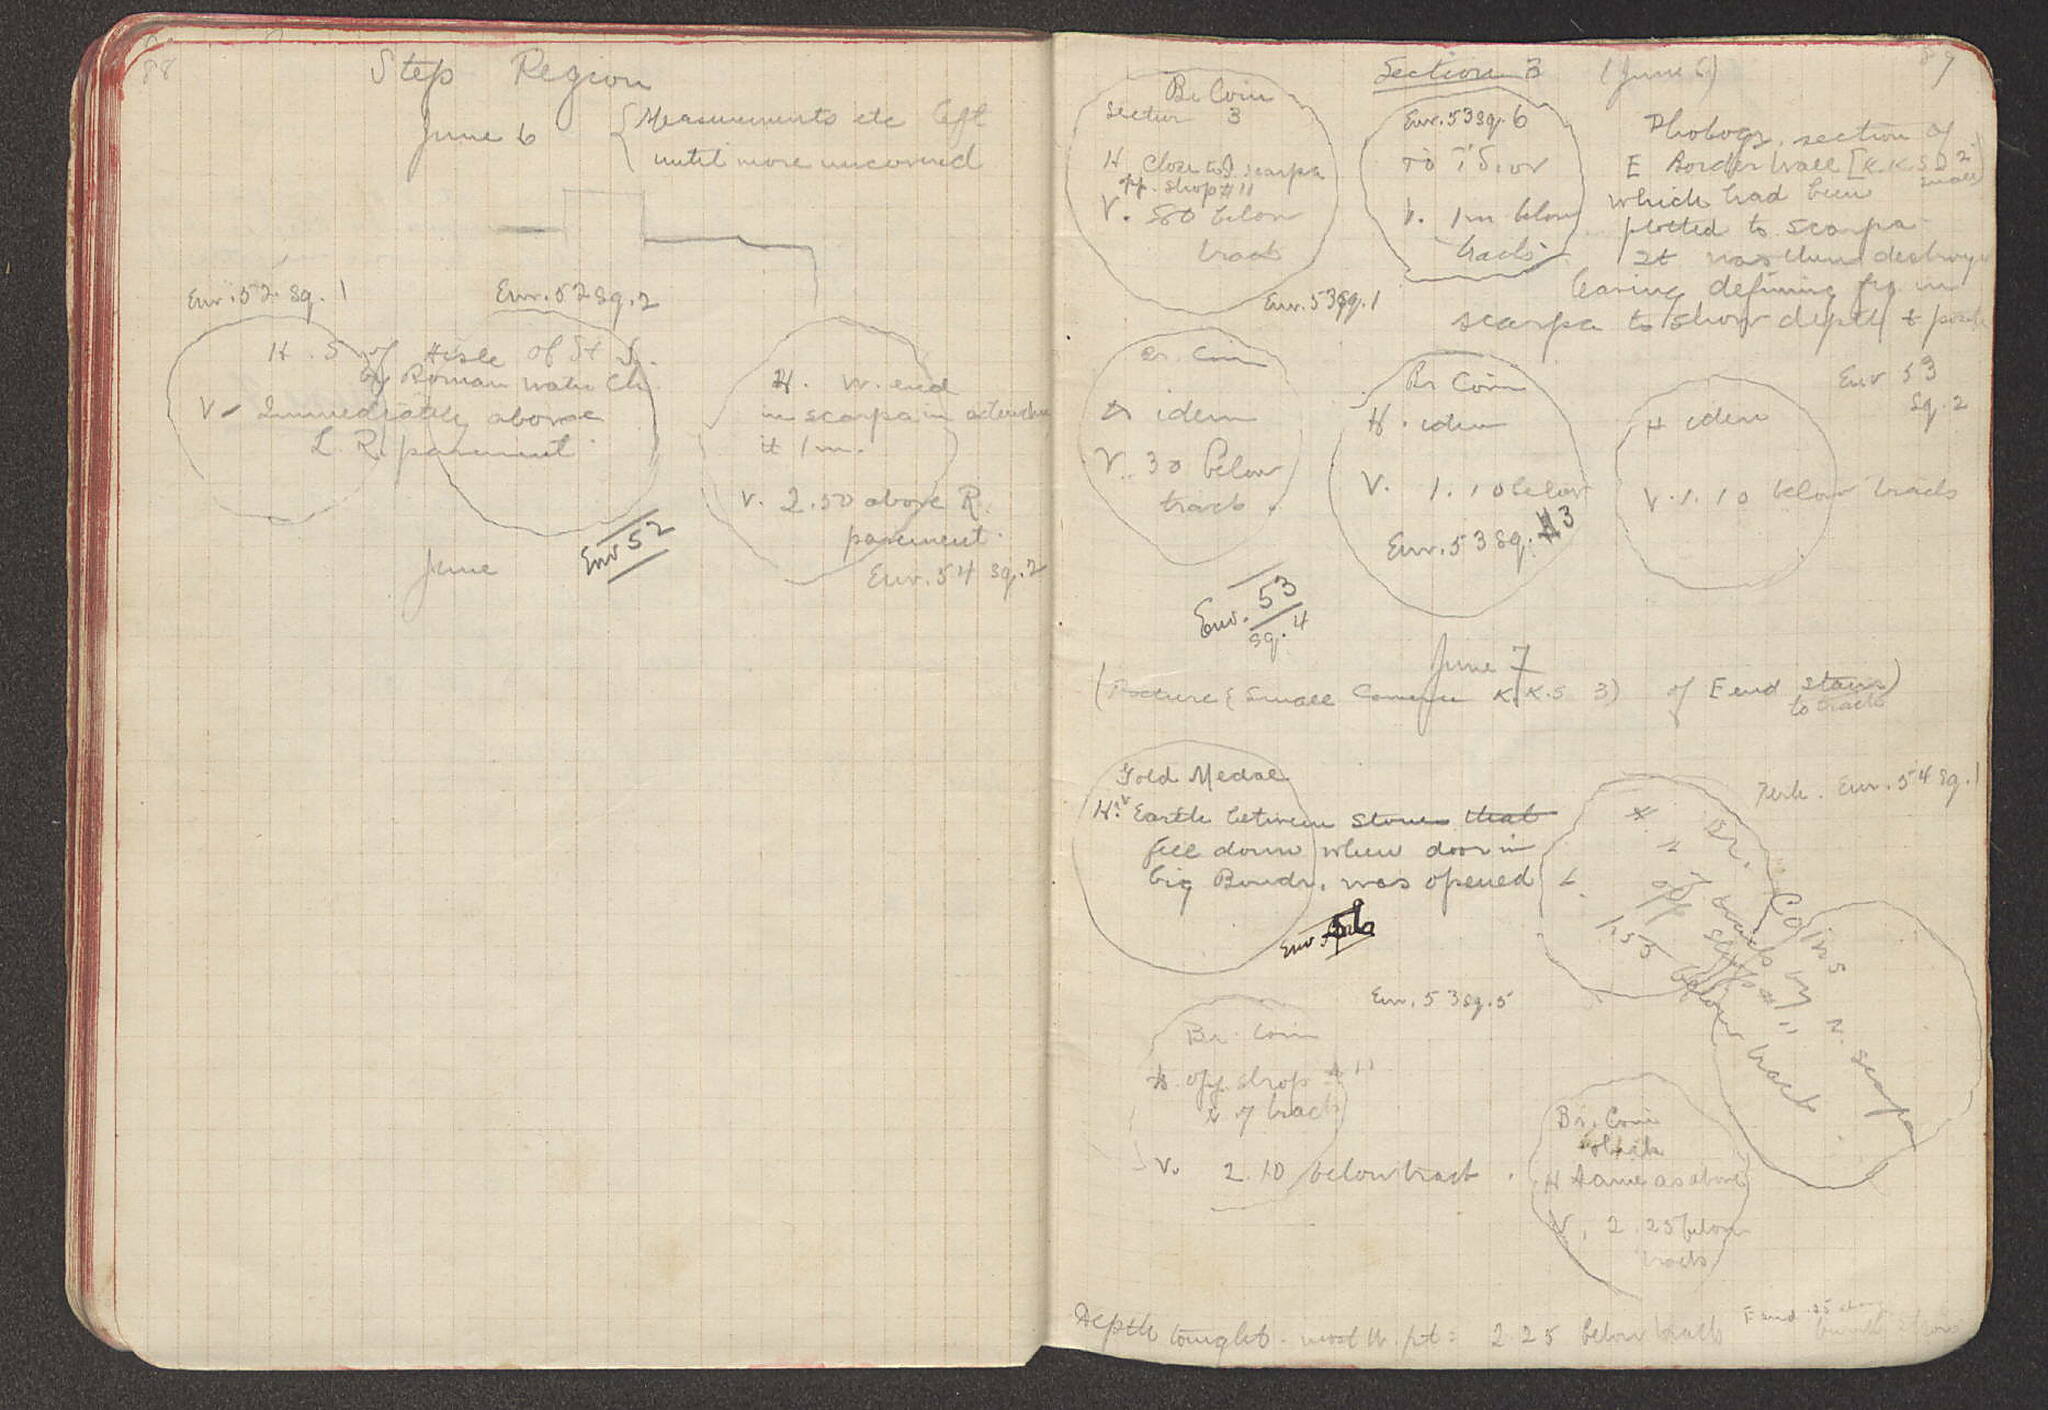 88
Step Region
June 6
Measurements etc left
until more uncovered
Env. 52. Sq. 1
Env. 52 Sq. 2
H. S of Aisle of St S.
by Roman water Ch.
V - Immediately above
L. R. pavement
Env 52
June
H. W. end
in scarpa in
it 1 m.
V. 2.50 above R.
pavement.
Env. 54 Sq. 2
89
Section 3 (June 6)
Br Coin
Section 3
H Close to S. scarpa
opp. shop # 11
V. 80 below
track
Env. 53 Sq. 1
Env. 53 Sq. 6
V. 1 m below
tracks
Photogr. section of
E Border wall [K.K.S 2
small]
which had been
plotted to scarpa
It was then destroyed
leaving defining frg in
scarpa to show depth &
Br. Coin
H idem
V. 30 below
track
Env. 53
Sq. 4
Br Coin
H. idem
V. 1.10 below
Env. 53 Sq. 3
Env 53
Sq. 2
H idem
V. 1.10 below tracks
June 7
(Picture { Small Camera K.K.S 3) of E end stairs)
to tracks
Gold Medal
H. V Earth between stones that
fell down when door in
big Boudr. was opened
Env. 56
Perh. Env. 54 Sq. 1
Br. Coins
opp shop # 11
1.53 below track
N. scarpa
Env. 53 Sq. 5
Br. Coin
H. opp. shop # 11
track
V. 2.10 below track.
Br. Coin
H Same as above
V. 2.25 below
tracks
Depth tonight - most W. pt = 2.25 below track E end